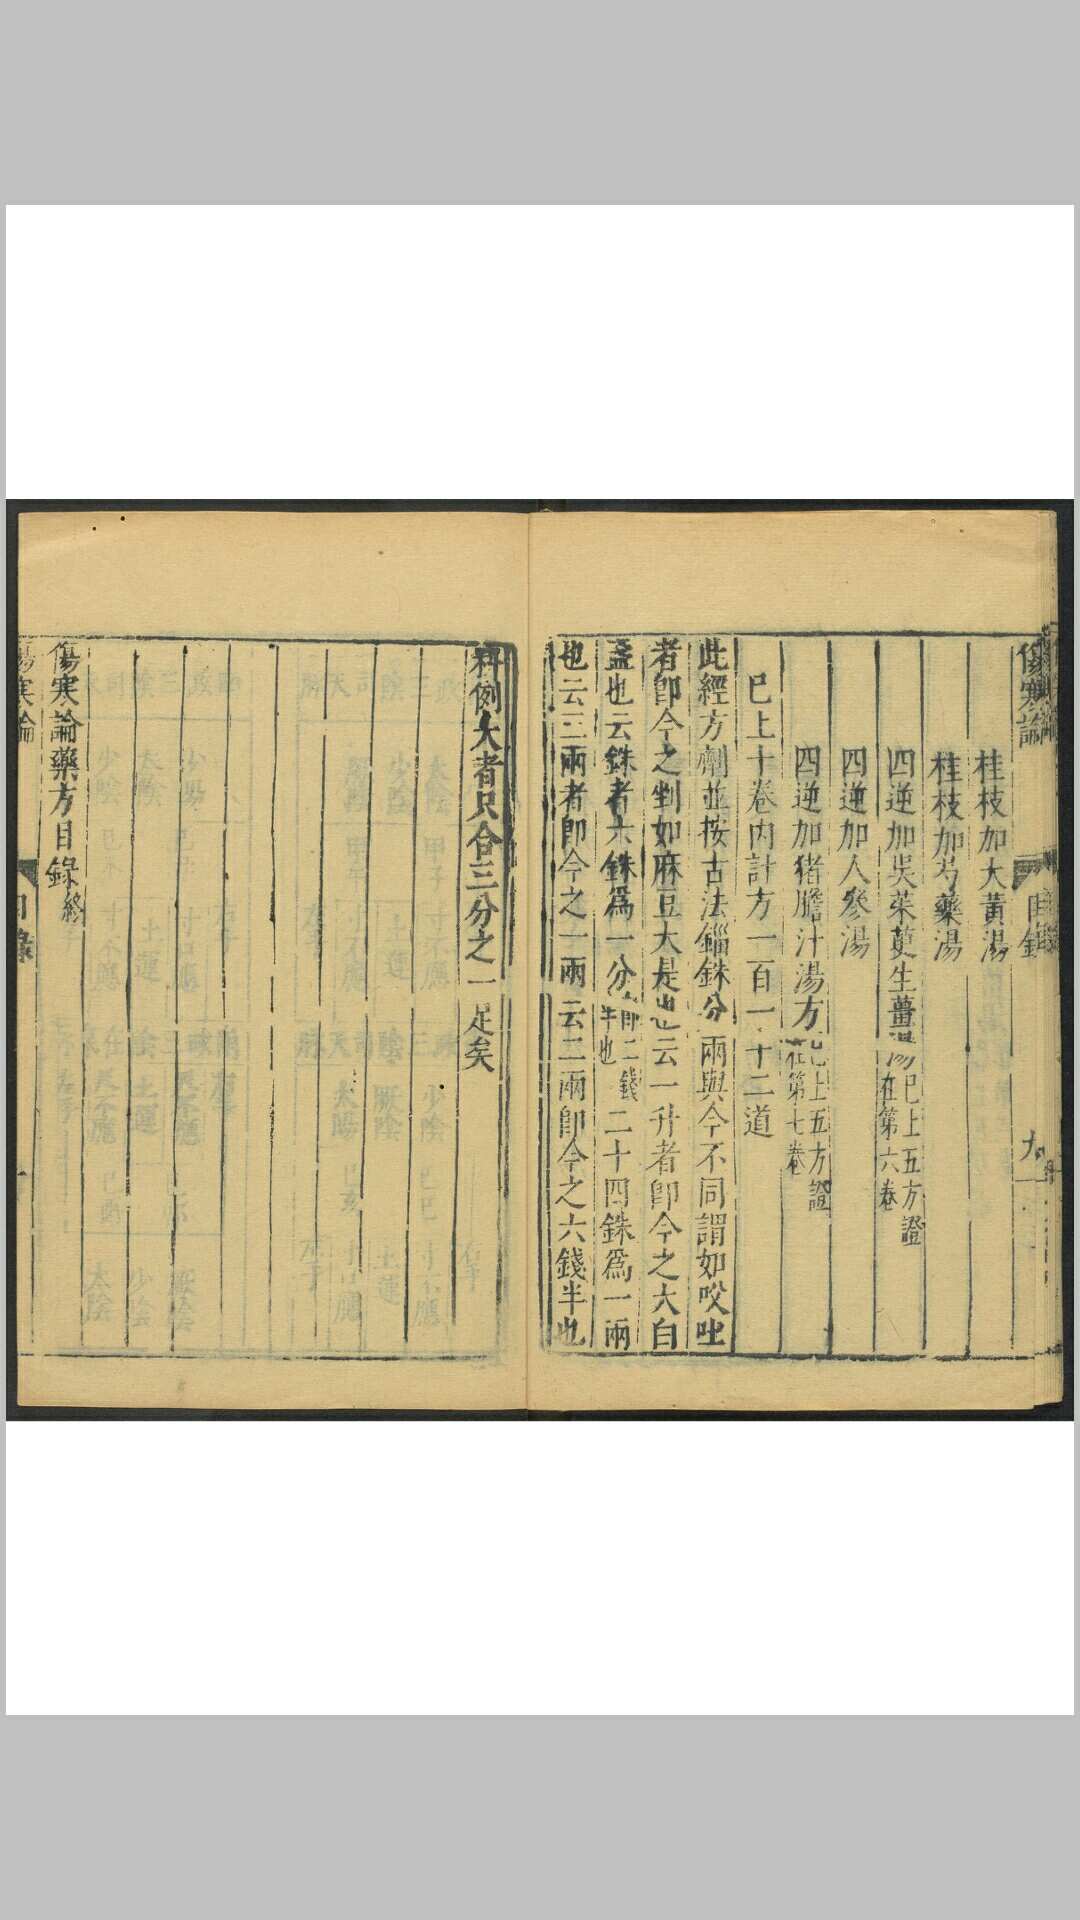 傷寒論
目錄
九
桂枝加大黃湯
桂枝加芍藥湯
四逆加吳茱萸生薑湯已上五方證在第六卷
四逆加人參湯
四逆加猪膽汁湯方已上五方證在第七卷
已上十卷内計方一百一十二道
此經方劑並按古法錙銖分兩與今不同謂如㕮咀
者卽今之剉如麻豆大是也云一升者卽今之大白
盞也云銖者六銖爲一分卽二錢半也二十四銖爲一兩
也云三兩者卽今之一兩云二兩卽今之六錢半也
料例大者只合三分之一足矣
傷寒論藥方目錄終
傷寒論
目錄